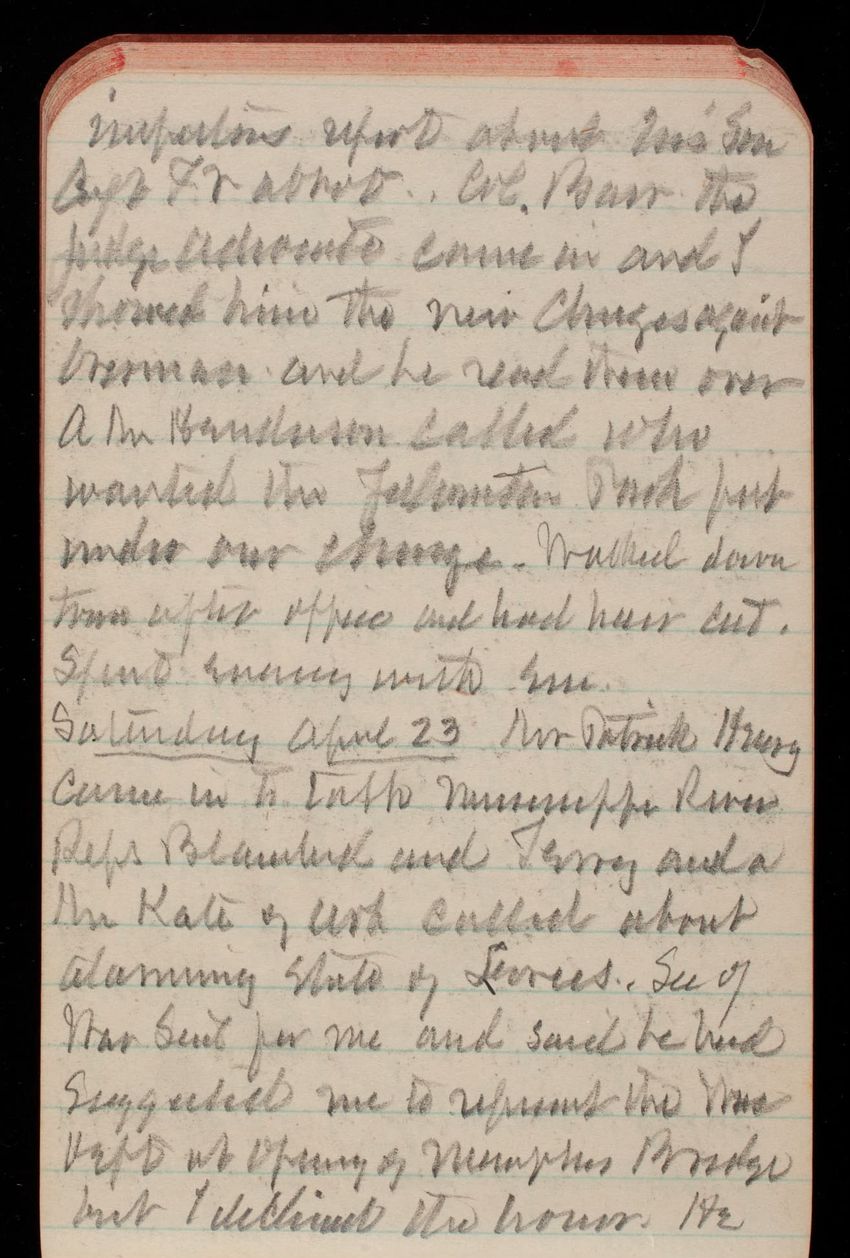 inspectors report about his Son
Capt F V Abbot.. Col. Barr the
judge advocate came in and I
showed him the new Charges against
Overman and he read them over
A Mr Henderson called who
wanted the Yellowstone Park put
under our charge. Walked down
town after office and had hair cut.
Spent evening with
Saturday April 23 Mr Patrick Henry
came in to talk Mississippi River
Reps Blanchard and Terry and a
Mr Kate of Ark called about
alarming state of Levees.. Sec of
War Sent for me and said he had
Suggested me to represent the War
Dept at Opening of Memphis Bridge
but I declined the honor. He